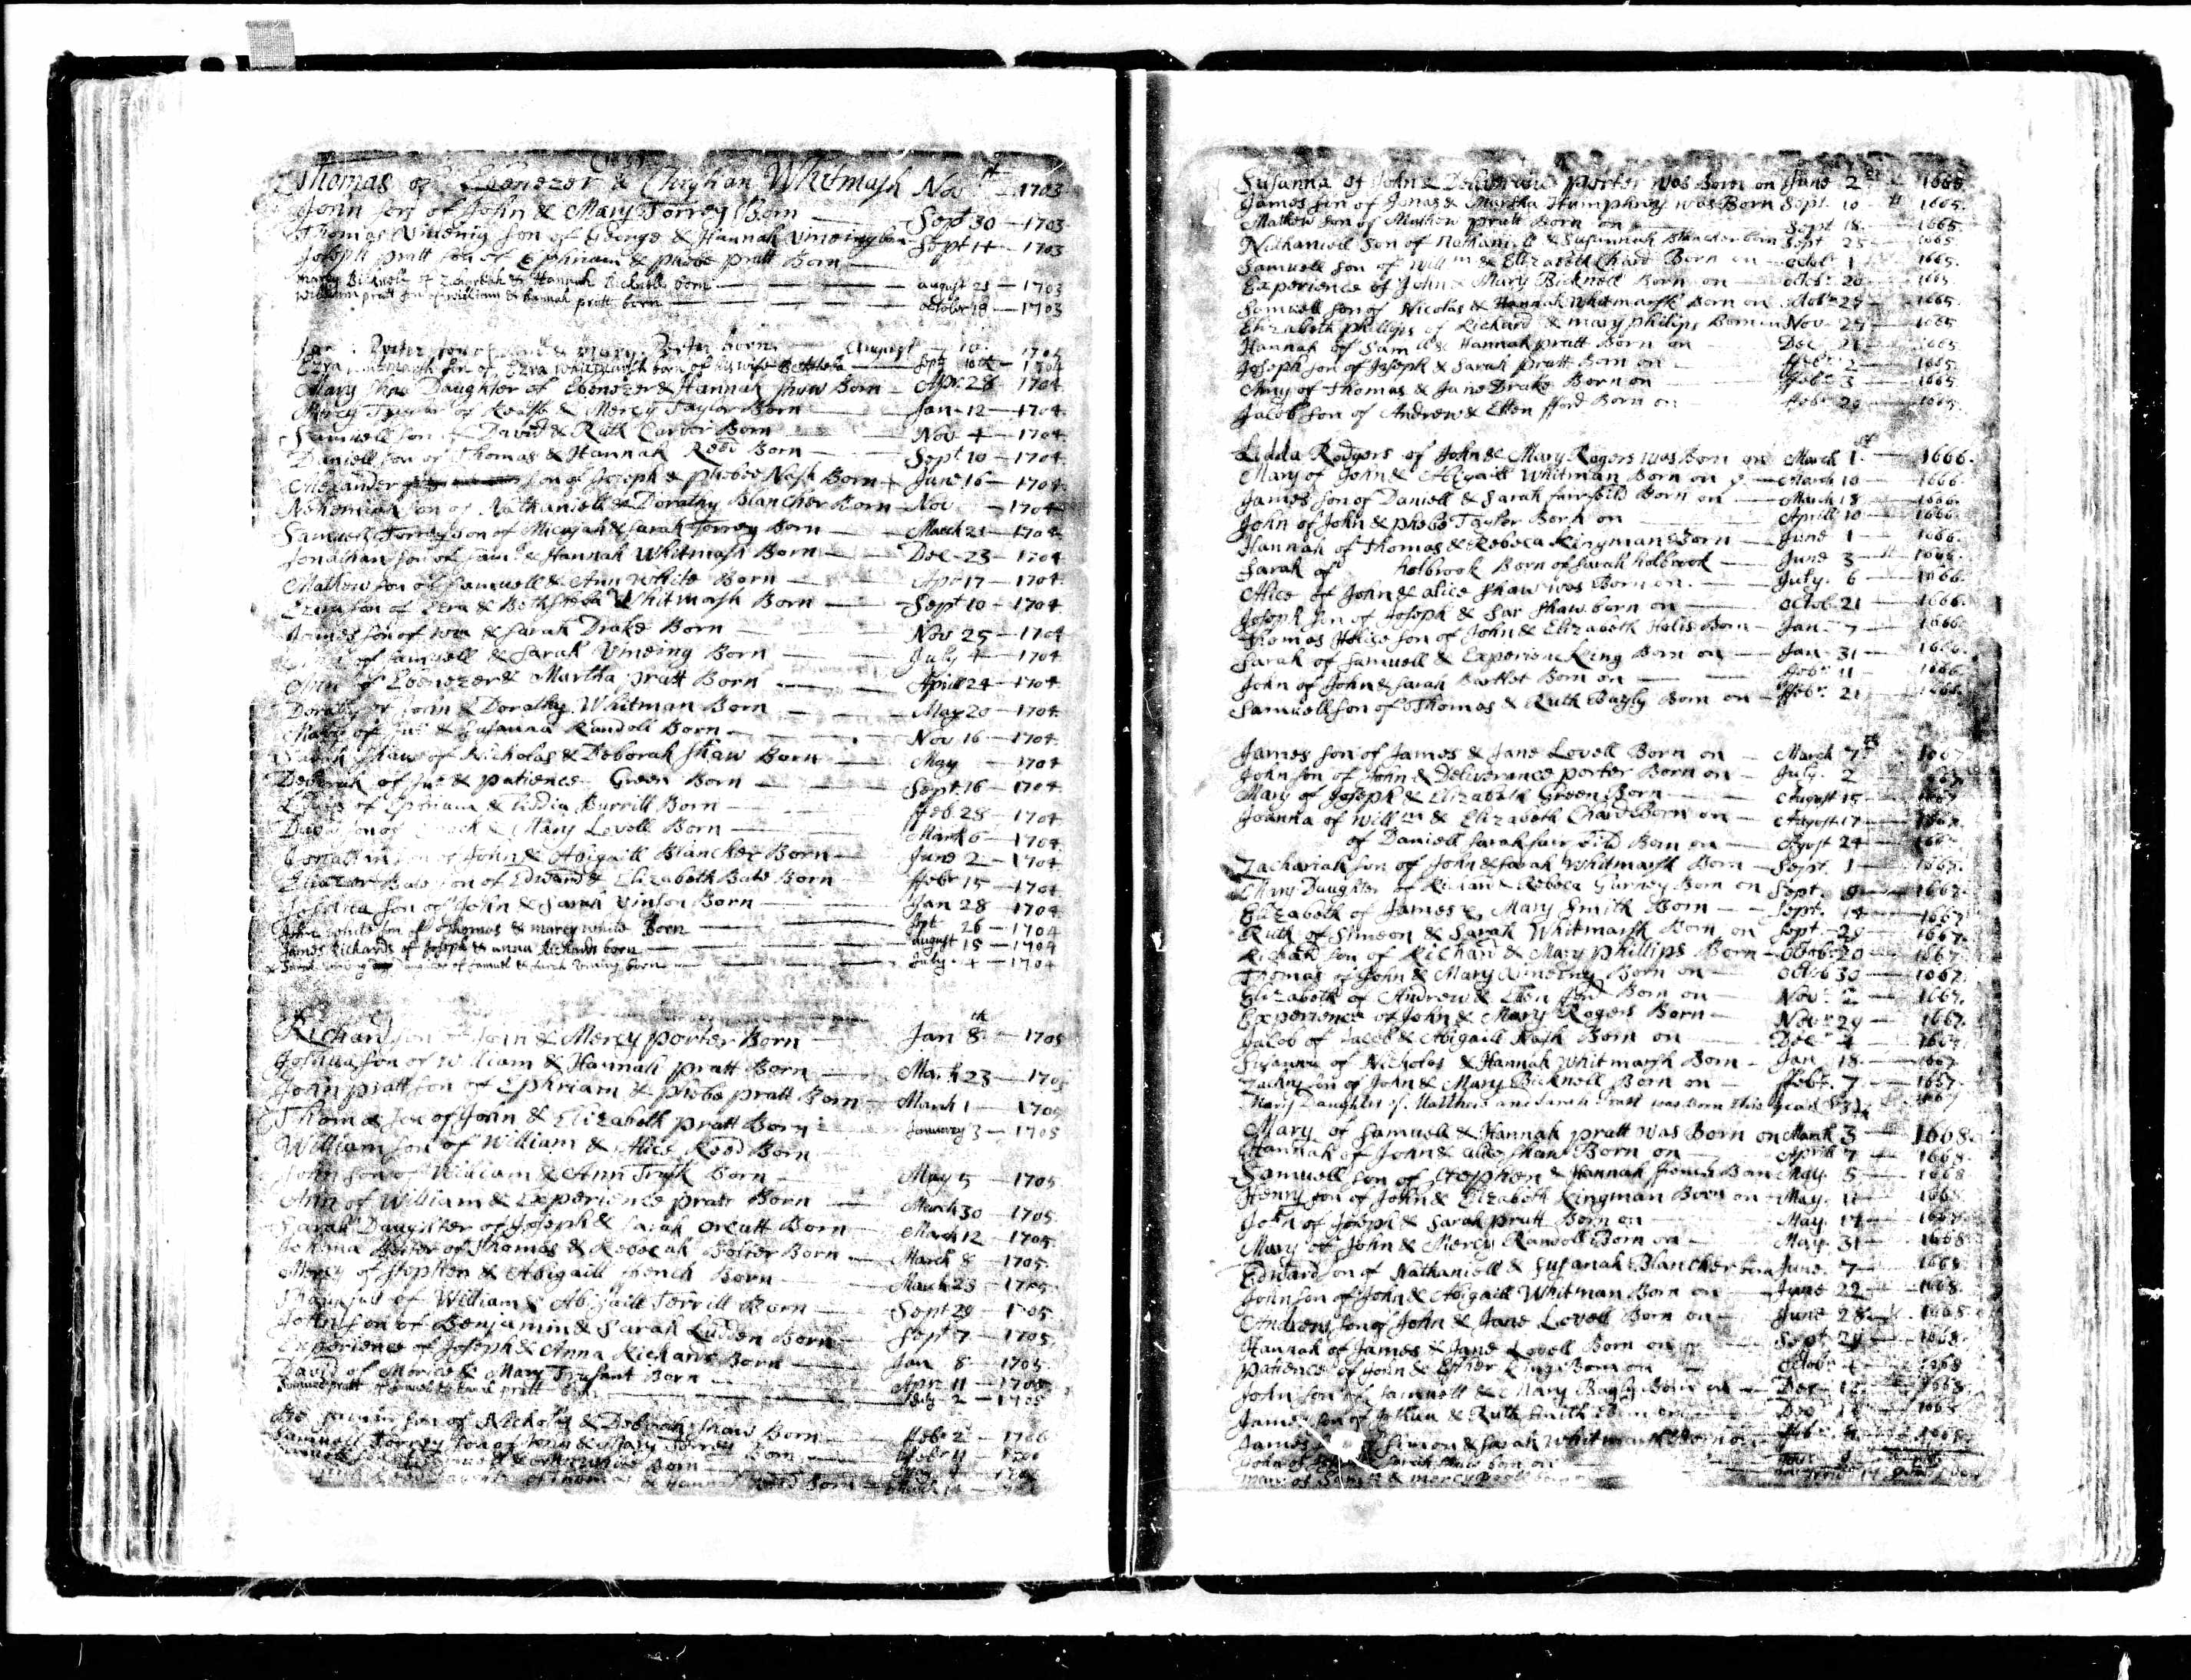 Thomas of Ebenezer & Whitmash Nov 1703
John son of John & Mary Torrey Born Sept 30 1703
Thomas son of George & Hannah Sept 14 1703
Joseph pratt son of Ephriam & phebe pratt Born
Mary Bicknell of Zachariah & Hannah Bicknell born august 23 1703
William pratt son of William & Hannah pratt born october 18 1703
Porter son of & Mary Porter born August 10
Ezra Whitmarsh son of Ezra Whitmarsh born of his wife Bethsheba Sept 10th 1704
Mary the Daughter of Ebenezer & Hannah Shaw Born Apr 28 1704
Mercy Taylor of & Mercy Taylor Born Jan 12 1704
Samuell son of David & Ruth Carver Born Nov 4 1704
Daniell son of Thomas & Hannah Reed Born Sept 10 1704
Alexander son of Joseph & phebee Nash Born June 16 1704
Nehemiah son of Nathaniell & Dorathy Blancher Born Nov 1704
Samuell Torrey son of Micajah & Sarah Torrey Born March 21 1704
Jonathan son of Sam & Hannah Whitmash Born Dec 23 1704
Mathew son of Samuell & Ann White Born Apr 17 1704
Ezra son of Ezra & Bethsheba Whitmarsh Born Sept 10 1704
James son of Wm & Sarah Drake Born Nov 25 1704
of Samuell & Sarah Vining Born July 4 1704
Ann of Ebenezer & Martha pratt Born Aprill 24 1704
Dorathy of John & Dorathy Whitman Born May 20 1704
of & Susanna Randell Born Nov 16 1704
Sarah Shaw of Nicholas & Deborah Shaw Born May 1704
Deborah of Jno & patience Green Born Sept 16 1704
of Ephriam & Liddia Burrill Born ffeb 28 1704
David son of Enoch & Mary Lovell Born March 6 1704
Jonathan son of John & Abigaill Blancher Born June 2 1704
Eliazer Bate son of Edward & Elizabeth Bate Born ffebr 15 1704
Joshua son of John & Sarah Vinson Born Jan 28 1704
John White son of Thomas & marcy white Born Spt 26 1704
James Richards of Joseph & anna Richards born august 15 1704
Sarah Vining Daughter of Samuel & Sarah Vining born July 4 1704
Richard son of John & Mercy porter Born Jan 8th 1705
Joshua son of William & Hannah pratt Born March 23 1705
John pratt son of Ephriam & Phebe pratt Born March 1 1705
Thomas son of John & Elizabeth pratt Born January 3 1705
William son of William & Alice Reed Born
John son of William & Ann Trysk Born May 5 1705
Ann of William & Experience pratt Born March 30 1705
Sarah Daughter of Joseph & Sarah Orcutt Born March 12 1705
of Thomas & Rebecah Bolter Born March 8 1705
Mercy of Stephen & Abigaill ffrench Born March 23 1705
of William & Abigaill Terrill Born Sept 29 1705
John son of Benjamin & Sarah Ludden Born Sept 7 1705
Experience of Joseph & Anna Richards Born Jan 8 1705
David of & Mary Trufant Born Apr 11 1705
Samuel pratt of Samuel & pratt July 2 1705
son of Nicholas & Deborah Shaw Born ffebr 2 1706
Samuell Torrey son of John & Mary Torrey Born ffebr 11 1706
Born
of Thomas & Hannah Reed Born
Susanna of John & Deliverance porter was Born on June 2 1665
James son of Jonas & Martha Humphrey was Born Sept. 10 1665
Mathew son of Mathew pratt Born on Sept 18 1665
Nathaniell son of Nathaniell & Susannah Blancher born Sept 25 1665
Samuell son of Willm & Elizabeth Chard Born on Octobr 1 1665
Experience of John & Mary Bicknell Born on Octobr 20 1665
Samuell son of Nicolas & Hannah Whitmarsh Born on Octobr 27 1665
Elizabeth phillips of Richard & mary philips Born on Nov 27 1665
Hannah of Samll & Hannah pratt Born on Dec 21 1665
Joseph son of Joseph & Sarah pratt Born on ffebr 2 1665
Amy of Thomas & Jane Drake Born on ffebr 3 1665
Jacob son of Andrew & Ellen fford Born on ffebr 29 1665
Lidda Rodgers of John & Mary Rogers was Born on March 1st 1666
Mary of John & Abigaill Whitman Born on March 10 1666
James son of Daniell & Sarah fairfeild Born on March 18 1666
John of John & phebe Taylor Born on Aprill 10 1666
Hannah of Thomas & Rebeca Kingman Born June 1 1666
Sarah of holbrook Born of Sarah holbrook June 3 1666
Alice of John & alice Shaw was Born on July 6 1666
Joseph son of Joseph & Sar Shaw born on Octob 21 1666
Thomas Holis son of John & Elizabeth Holis Born Jan 7 1666
Sarah of Samuell & Experience King Born on Jan 31 1666
John of John & Sarah Bartlet Born on ffebr 11 1666
Samuell son of Thomas & Ruth Bayly Born on ffebr 21 1666
James son of James & Jane Lovell Born on March 7th 1667
John son of John & Deliverance porter Born on July 2 1667
Mary of Joseph & Elizabeth Green Born August 15 1667
Joanna of Willm & Elizabeth Chard Born on August 17 1667
of Daniell Sarah fair feild Born on August 24 1667
Zachariah son of John & Sarah Whitmarsh Born Sept. 1 1667
Mary Daughter of Richard & Rebeca Gurney Born on Sept. 9 1667
Elizabeth of James & Mary Smith Born Sept. 14 1667
Ruth of Simeon & Sarah Whitmarsh Born on Sept 29 1667
Richard son of Richard & Mary phillips Born Octobr 20 1667
Thomas of John & Mary Born on Octob 30 1667
Elizabeth of Andrew & Ellen fford Born on Novr 2 1667
Experience of John & Mary Rogers Born Novr 29 1667
Jacob of Jacob & Abigaill Nash Born on Decr 4 1667
Susanna of Nicholas & Hannah Whitmarsh Born Jan 18 1667
Zachry son of John & Mary Bicknell Born on ffebr 7 1667
Mary Daughter of Matthew and Sarah Pratt was born this year 1667
Mary of Samuell & Hannah pratt was Born on March 3 1668
Hannah of John & alice Shaw Born on Aprill 7 1668
Samuell son of Stephen & Hannah french Born May 5 1668
Henry son of John & Elizabeth Kingman Born on May 11 1668
John of Joseph & Sarah pratt Born on May 17 1668
Mary of John & Mercy Randell Born on May 31 1668
Edward son of Nathaniell & Susanah Blancher born June 7 1668
John son of John & Abigaill Whitman Born on June 22 1668
Andrew son of John & Jane Lovell Born on June 28 1668
Hannah of James & Jane Lovell Born on Sept 29 1668
patience of John & Esther King Born on Octobr 1668
John son of Samuell & Mary Bayly Born on Decr 12 1668
James son of Joshua & Ruth Smith Born on Dec 1668
James of Simon & Sarah Whitmarsh Born on ffebr 1668
John of Sarah Shaw born on
mary of Samll & mercy poole born